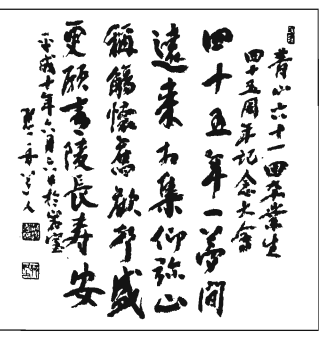 青山六十一回卒業生
四十五周年記念大会
四十五年一夢間
遠来相集仰弥山
稱觴懐舊歓盛
更願青陵長寿安
平成十年六月六日於岩室
人